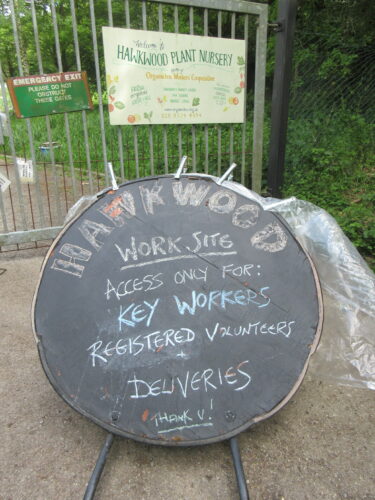 Welcome to
HAWKWOOD PLANT NURSERY
Organiclea Workers Cooperative
EMERGENCY EXIT
PLEASE DO NOT
OBSTRUCT
THESE GATES
HAWKWOOD
WORK SITE
ACCESS ONLY FOR:
KEY WORKERS
REGISTERED VOLUNTEERS
+
DELIVERIES
THANK U!